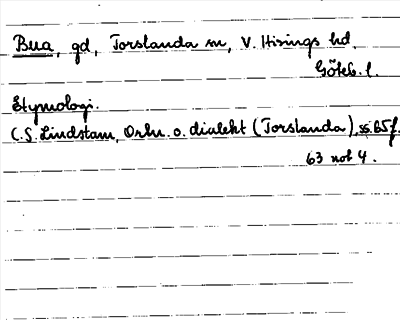 Bua, gd, Torslanda sn, V. Hisings hd.
Göteb. l.
Etymologi.
C.S. Lindstam, Ortn. o. dialekt (Torslanda), ss. 65f.
63 not 4.